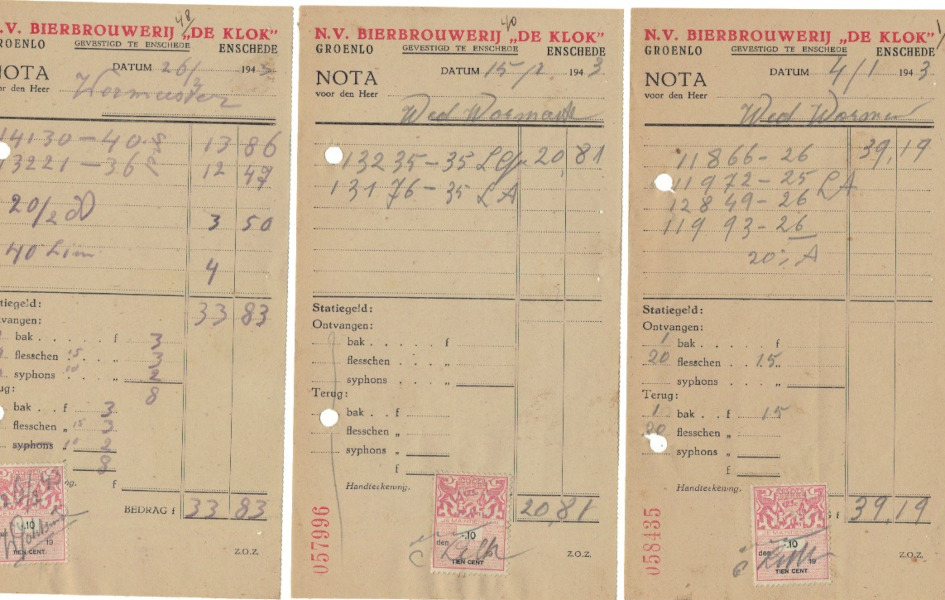 48
N.V. BIERBROUWERIJ „DE KLOK"
GROENLO GEVESTIGD TE ENSCHEDE ENSCHEDE
NOTA DATUM 26/2 194
voor den Heer
14130 - 40 13 86
13221 - 36 12 47
20/2 3 50
40 Lim 4
Statiegeld: 33 83
Ontvangen:
bak . . f 3
flesschen 15 . . „ 3
syphons 10 . . „ 2
8
Terug:
bak . . f 3
flesschen „ 15 3
syphons „ 10 2
8
f
BEDRAG f 33 83
.10
19
TIEN CENT
Z.O.Z.
40
N.V. BIERBROUWERIJ „DE KLOK"
GROENLO GEVESTIGD TE ENSCHEDE ENSCHEDE
NOTA DATUM 15/2 1943
voor den Heer
Wed
13235 - 35 20,81
13176 - 35 LA
Statiegeld:
Ontvangen:
bak . . . . f
flesschen . . . „
syphons . . . „
Terug:
bak . . . f
flesschen „
syphons „
f
Handteekening.
20,81
057996
den .10
TIEN CENT
Z.O.Z.
N.V. BIERBROUWERIJ „DE KLOK"
GROENLO GEVESTIGD TE ENSCHEDE ENSCHEDE
NOTA DATUM 4/1 1943
voor den Heer
Wed
11866 - 26 39,19
11972 - 25 LA
12849 - 26
11993 - 26
20
Statiegeld:
Ontvangen:
1 bak . . . . f
20 flesschen . 15 . „
syphons . . . „
Terug:
1 bak . . . f 15
20 flesschen „
syphons „
f
Handteekening.
f 39,19
058435
den .10 19
TIEN CENT
Z.O.Z.